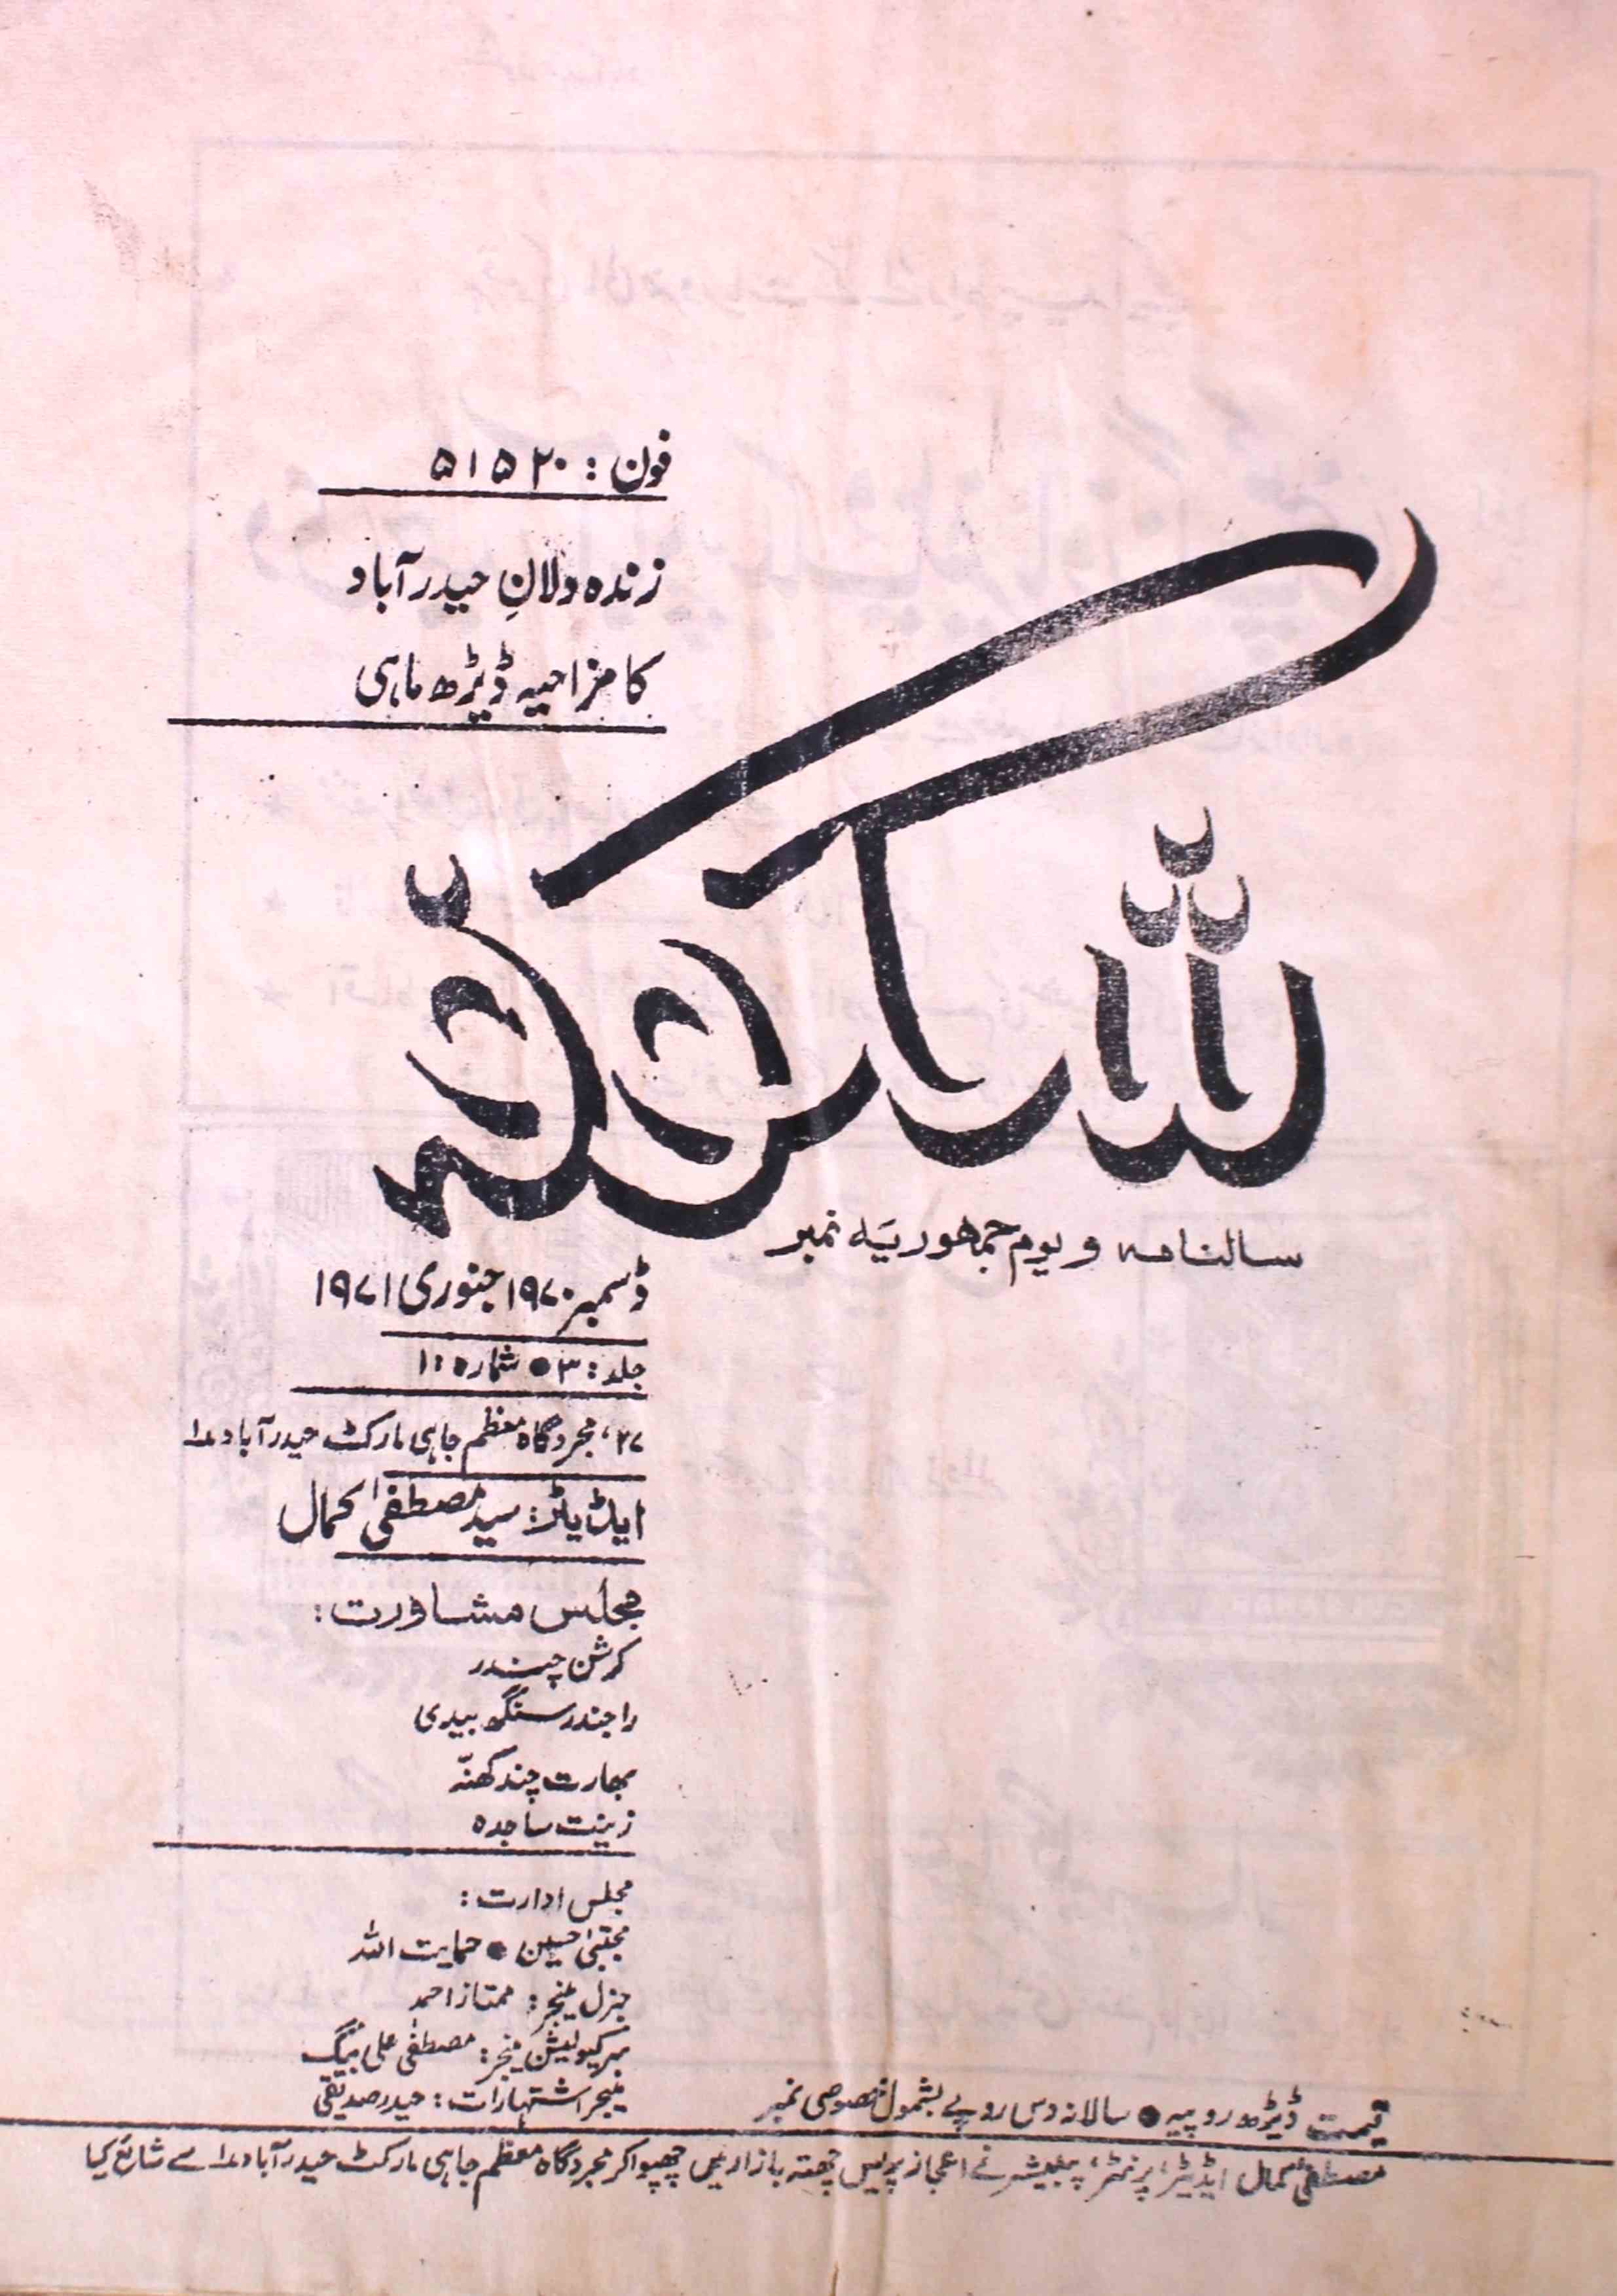 فون: ۵۱۵۲۰
زندہ دلانِ حیدرآباد
کا مزاحیہ ڈیڑھ ماہی
شگوفہ
سالنامہ و یوم جمہوریہ نمبر
ڈسمبر ۱۹۷۰ جنوری ۱۹۷۱
جلد: ۳ ● شمارہ: ۱۰
۳۷، مجردگاہ معظم جاہی مارکٹ حیدرآباد ۱
ایڈیٹر: سید مصطفیٰ کمال
مجلس مشاورت:
کرشن چندر
راجندر سنگھ بیدی
بھارت چند کھنّہ
زینت ساجدہ
مجلس ادارت:
مجتبیٰ حسین ● حمایت اللہ
جنرل منیجر: ممتاز احمد
سرکیولیشن منیجر: مصطفٰی علی بیگ
منیجر اشتہارات: حیدر صدیقی
قیمت ڈیڑھ روپیہ ● سالانہ دس روپے بشمول خصوصی نمبر
مصطفیٰ کمال ایڈیٹر، پرنٹر، پبلیشر نے اعجاز پریس چھتہ بازار میں چھپوا کر مجردگاہ معظم جاہی مارکٹ حیدرآباد ۱ سے شائع کیا